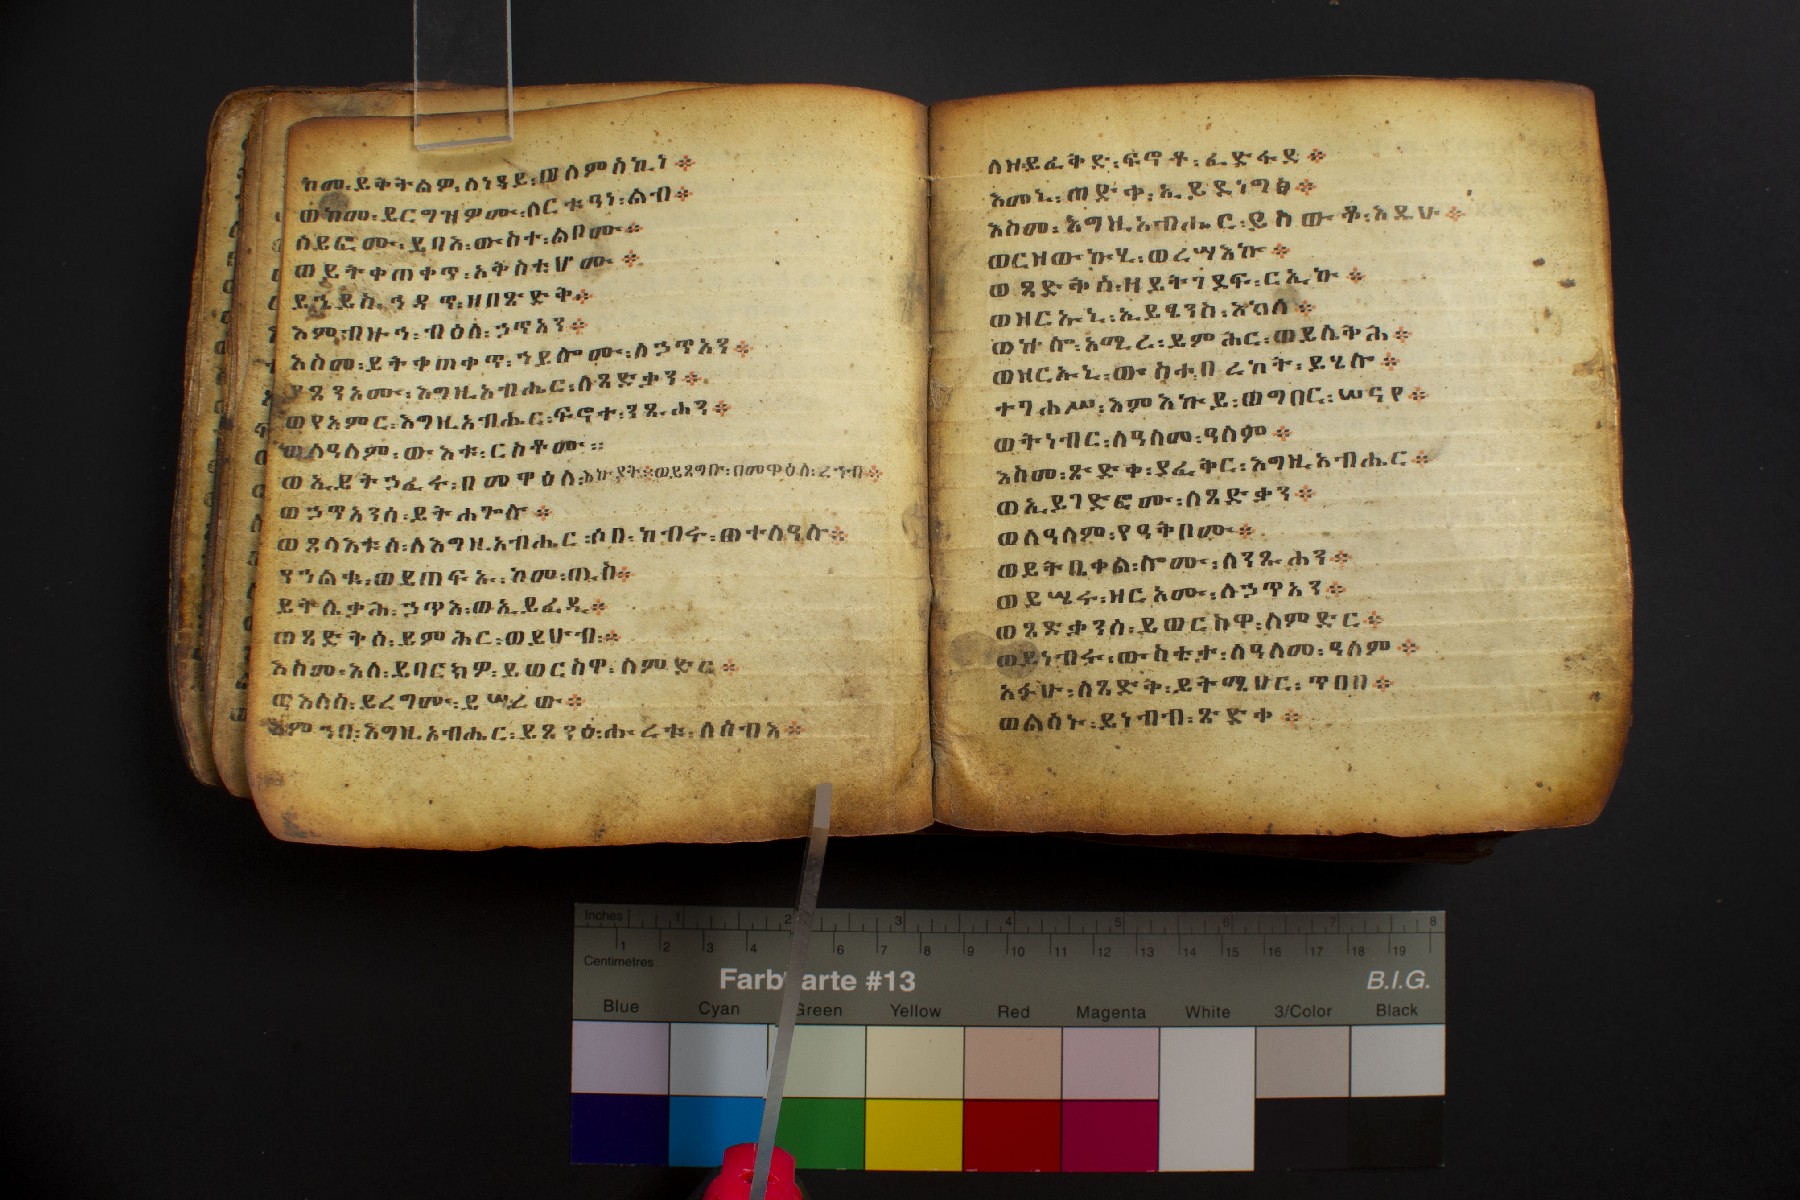 ከመ፡ይቅትልዎ፡ለነዳይ፡ወለምስኪን፨
ወከመ፡ይርግዝዎሙ፡ለርቱዓነ፡ልብ፨
ሰይፎሙ፡ይባእ፡ውስተ፡ልቦሙ፨
ወይትቀጠቀጥ፡አቅስቲሆሙ፨
ይኄይስ፡ኅዳጥ፡ዘበጽድቅ፨
እምብዙኅ፡ብዕለ፡ኃጥአን፨
እስመ፡ይትቀጠቀጥ፡ኀይሎሙ፡ለኃጥአን፨
ያጸንአሙ፡እግዚአብሔር፡ለጻድቃን፨
ወየአምር፡እግዚአብሔር፡ፍኖተ፡ንጹሐን፨
ወለዓለም፡ውእቱ፡ርስቶሙ፨
ወኢይትኃፈሩ፡በመዋዕለ፡እኩያት፨ወይጸግቡ፡በመዋዕለ፡ረኀብ፨
ወኃጥአንሰ፡ይትሐጐሉ፨
ወጸላእቱሰ፡ለእግዚአብሔር፡ሶበ፡ከብሩ፡ወተለዓሉ፨
የኀልቁ፡ወይጠፍኡ፡ከመ፡ጢስ፨
ይትሌቃሕ፡ኃጥእ፡ወኢይፈዲ፨
ወጻድቅሰ፡ይምሕር፡ወይሁብ፨
እስመ፡እለ፡ይባርክዎ፡ይወርስዋ፡ለምድር፨
ወእለሰ፡ይረግሙ፡ይሤረው፨
እምኀበ፡እግዚአብሔር፡ይጸንዕ፡ሑረቱ፡ለሰብእ፨
ለዘይፈቅድ፡ፍኖቶ፡ፈድፋደ፨
እመኒ፡ወድቀ፡ኢይደነግፅ፨
እስመ፡እግዚአብሔር፡ይስውቆ፡እዴሁ፨
ወርዝውኩሂ፡ወረሣእኩ፨
ወጻድቅሰ፡ዘይትገደፍ፡ርኢኩ፨
ወዘርኡኒ፡ኢይፄነስ፡እክለ፨
ወዝሎ፡አሚረ፡ይምሕር፡ወይሌቅሕ፨
ወዘርኡኒ፡ውስተ፡በረከት፡ይሄሉ፨
ተግሐሥ፡እምእኩይ፡ወግበር፡ሠናየ፨
ወትነብር፡ለዓለመ፡ዓለም፨
እስመ፡ጽድቀ፡ያፈቅር፡እግዚአብሔር፨
ወኢይገድፎሙ፡ለጻድቃን፨
ወለዓለም፡የዓቅቦሙ፨
ወይትቤቀል፡ሎሙ፡ለንጹሐን፨
ወይሤሩ፡ዘርአሙ፡ለኃጥአን፨
ወጻድቃንሰ፡ይወርስዋ፡ለምድር፨
ወይነብሩ፡ውስቴታ፡ለዓለመ፡ዓለም፨
አፉሁ፡ለጻድቅ፡ይትሜሀር፡ጥበበ፨
ወልሳኑ፡ይነብብ፡ጽድቀ፨
Inches 1 2 3 4 5 6 7 8
1 2 3 4 6 7 8 9 10 11 12 13 14 15 16 17 18 19
Centimetres
Farb arte #13 B.I.G.
Blue Cyan Green Yellow Red Magenta White 3/Color Black